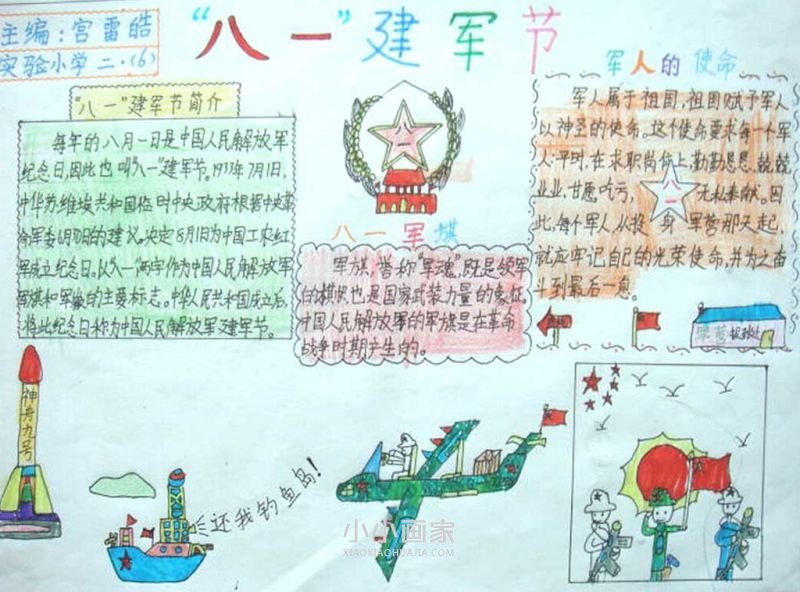 主编:宫雷皓
实验小学二·(6)
“八一”建军节
“八一”建军节简介
每年的八月一日是中国人民解放军
纪念日,因此也叫“八一”建军节。1933年7月1日,
中华苏维埃共和国临时中央政府根据中央革
命军委6月30日的建议,决定8月1日为中国工农红
军成立纪念日。以八一两字作为中国人民解放军
军旗和军徽的主要标志。中华人民共和国成立后,
将此纪念日称为中国人民解放军建军节。
八一
八一军旗
军旗,誉称“军魂”,既是领军
的旗帜,也是国家武装力量的象征。
中国人民解放军的军旗是在革命
战争时期产生的。
军人的使命
军人属于祖国,祖国赋予军人
以神圣的使命。这个使命要求每一个军
人平时,在求职尚倾上勤勤恳恳、兢兢
业业,甘愿吃亏,无私奉献。因
此,每个军人从投身军营那天起,
就应牢记自己的光荣使命,并为之奋
斗到最后一息。
八一
军营
神舟九号
还我钓鱼岛!
小小画家
XIAOXIAOHUAJIA.COM